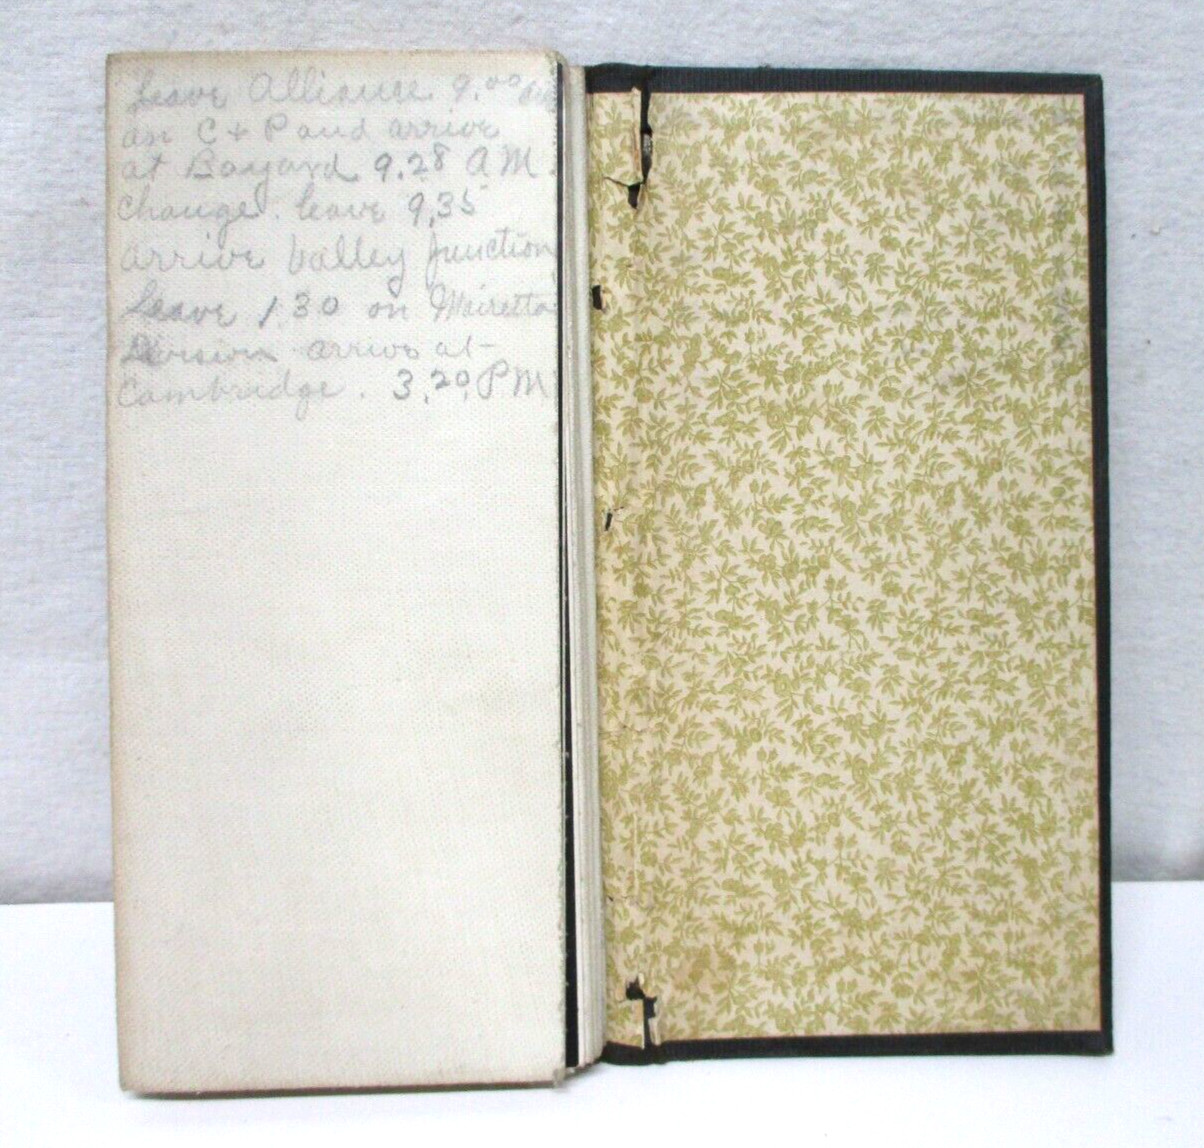 Leave Alliance 9.00 am
on C & P and arrive
at Bayard 9.28 A M.
Change. leave 9,35
arrive Valley Junction
Leave 1.30 on Mairetta
Division arrive at
Cambridge. 3.20. P M